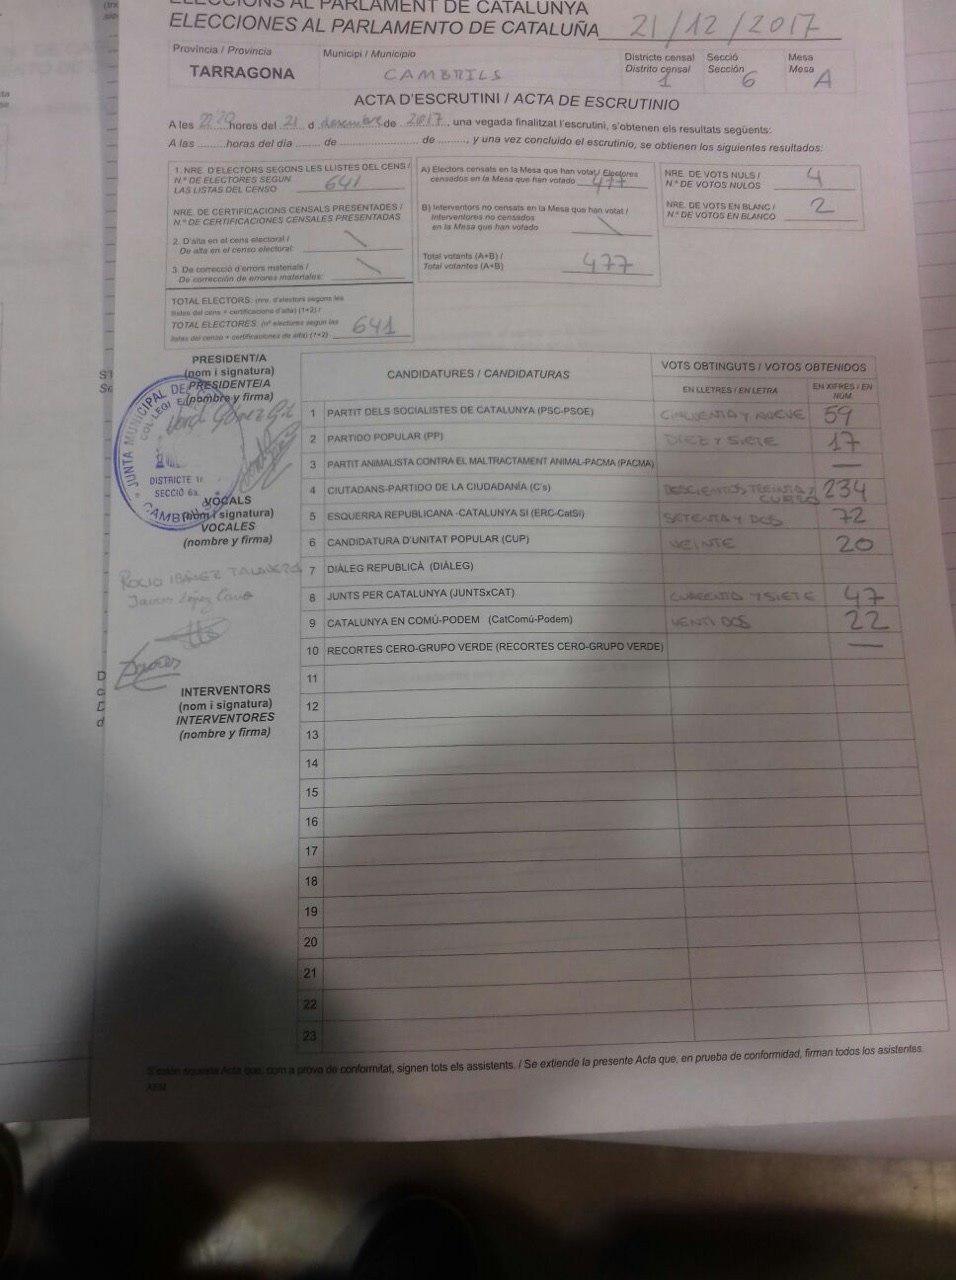 ELECCIONS AL PARLAMENT DE CATALUNYA
ELECCIONES AL PARLAMENTO DE CATALUÑA 21/12/2017
Província / Provincia
TARRAGONA
Municipi / Municipio
CAMBRILS
Districte censal
Distrito censal
1
Secció
Sección
6
Mesa
Mesa
A
ACTA D'ESCRUTINI / ACTA DE ESCRUTINIO
A les hores del 21 d desembre de 2017, una vegada finalitzat l'escrutini, s'obtenen els resultats següents:
A las ........horas del día ...... de .................... de ........, y una vez concluido el escrutinio, se obtienen los siguientes resultados:
1. NRE. D'ELECTORS SEGONS LES LLISTES DEL CENS /
N.º DE ELECTORES SEGÚN
LAS LISTAS DEL CENSO 641
NRE. DE CERTIFICACIONS CENSALS PRESENTADES /
N.º DE CERTIFICACIONES CENSALES PRESENTADAS
2. D'alta en el cens electoral /
De alta en el censo electoral:
3. De correcció d'errors materials /
De corrección de errores materiales:
TOTAL ELECTORS: (nre. d'electors segons les
llistes del cens + certificacions d'alta) (1+2) /
TOTAL ELECTORES: (nº electores según las
listas del censo + certificaciones de alta) (1+2) 641
A) Electors censats en la Mesa que han votat / Electores
censados en la Mesa que han votado 477
B) Interventors no censats en la Mesa que han votat /
Interventores no censados
en la Mesa que han votado
Total votants (A+B) /
Total votantes (A+B) 477
NRE. DE VOTS NULS /
N.º DE VOTOS NULOS 4
NRE. DE VOTS EN BLANC /
N.º DE VOTOS EN BLANCO 2
PRESIDENT/A
(nom i signatura)
PRESIDENTE/A
(nombre y firma)
JUNTA MUNICIPAL DE
COL·LEGI
DISTRICTE 1r
SECCIÓ 6a
CAMBRILS
VOCALS
(nom i signatura)
VOCALES
(nombre y firma)
ROCIO IBAÑEZ TALAVERA
Javier López Cano
INTERVENTORS
(nom i signatura)
INTERVENTORES
(nombre y firma)
CANDIDATURES / CANDIDATURAS
VOTS OBTINGUTS / VOTOS OBTENIDOS
EN LLETRES / EN LETRA
EN XIFRES / EN NÚM.
1 PARTIT DELS SOCIALISTES DE CATALUNYA (PSC-PSOE) CINCUENTA Y NUEVE 59
2 PARTIDO POPULAR (PP) DIEZ Y SIETE 17
3 PARTIT ANIMALISTA CONTRA EL MALTRACTAMENT ANIMAL-PACMA (PACMA) —
4 CIUTADANS-PARTIDO DE LA CIUDADANÍA (C's) DOSCIENTOS TREINTA Y CUATRO 234
5 ESQUERRA REPUBLICANA -CATALUNYA SÍ (ERC-CatSí) SETENTA Y DOS 72
6 CANDIDATURA D'UNITAT POPULAR (CUP) VEINTE 20
7 DIÀLEG REPUBLICÀ (DIÀLEG)
8 JUNTS PER CATALUNYA (JUNTSxCAT) CUARENTA Y SIETE 47
9 CATALUNYA EN COMÚ-PODEM (CatComú-Podem) VENTIDOS 22
10 RECORTES CERO-GRUPO VERDE (RECORTES CERO-GRUPO VERDE) —
11
12
13
14
15
16
17
18
19
20
21
22
23
S'estén aquesta Acta que, com a prova de conformitat, signen tots els assistents. / Se extiende la presente Acta que, en prueba de conformidad, firman todos los asistentes.